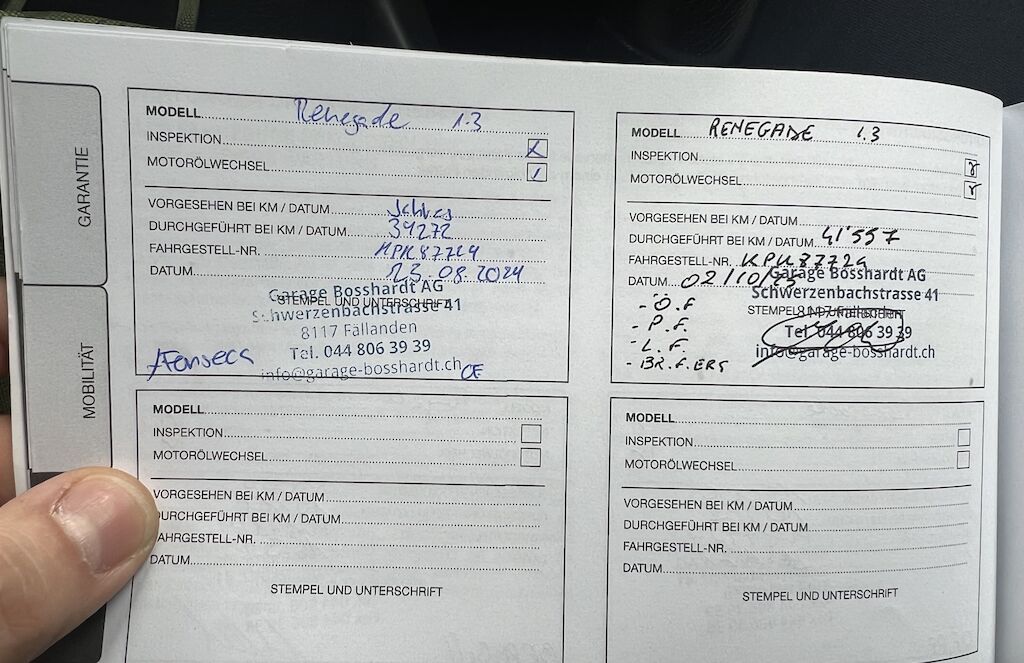 GARANTIE
MOBILITÄT
MODELL Renegade 1.3
INSPEKTION X
MOTORÖLWECHSEL
VORGESEHEN BEI KM / DATUM
DURCHGEFÜHRT BEI KM / DATUM 39272
FAHRGESTELL-NR.
DATUM 23.08.2024
STEMPEL UND UNTERSCHRIFT
Garage Bosshardt AG
Schwerzenbachstrasse 41
8117 Fällanden
Tel. 044 806 39 39
info@garage-bosshardt.ch
Fonseca CF
MODELL RENEGADE 1.3
INSPEKTION
MOTORÖLWECHSEL
VORGESEHEN BEI KM / DATUM
DURCHGEFÜHRT BEI KM / DATUM 41'557
FAHRGESTELL-NR. KPK87729
DATUM 02/10/25
Garage Bosshardt AG
Schwerzenbachstrasse 41
STEMPEL UND UNTERSCHRIFT
8117 Fällanden
Tel. 044 806 39 39
info@garage-bosshardt.ch
- Ö.F
- P.F.
- L.F.
- BR.F.ERS
MODELL
INSPEKTION
MOTORÖLWECHSEL
VORGESEHEN BEI KM / DATUM
DURCHGEFÜHRT BEI KM / DATUM
FAHRGESTELL-NR.
DATUM
STEMPEL UND UNTERSCHRIFT
MODELL
INSPEKTION
MOTORÖLWECHSEL
VORGESEHEN BEI KM / DATUM
DURCHGEFÜHRT BEI KM / DATUM
FAHRGESTELL-NR.
DATUM
STEMPEL UND UNTERSCHRIFT